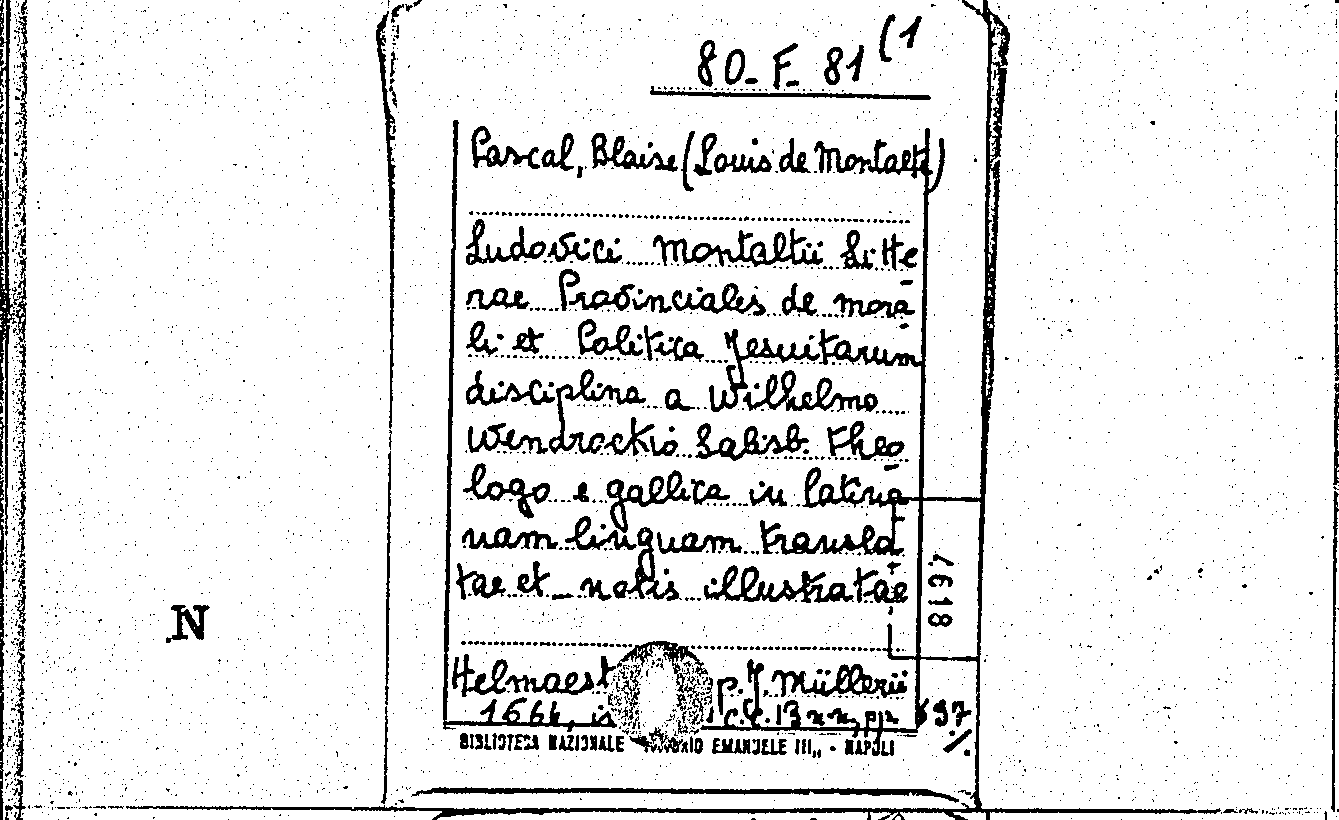 80-F-81 (1
Pascal, Blaise (Louis de Montalte)
Ludovici Montaltii Litte
rae Provinciales de mora
li et Politica Jesuitarum
disciplina a Wilhelmo
Wendrockio Salisb. theo
logo e gallica in latina
nam linguam transla
tae et notis illustratae
8197
N
Helmaest p. J. Mülleri
1664, c.c. 13 nn, pp 697
BIBLIOTECA NAZIONALE EMANUELE III,, - NAPOLI